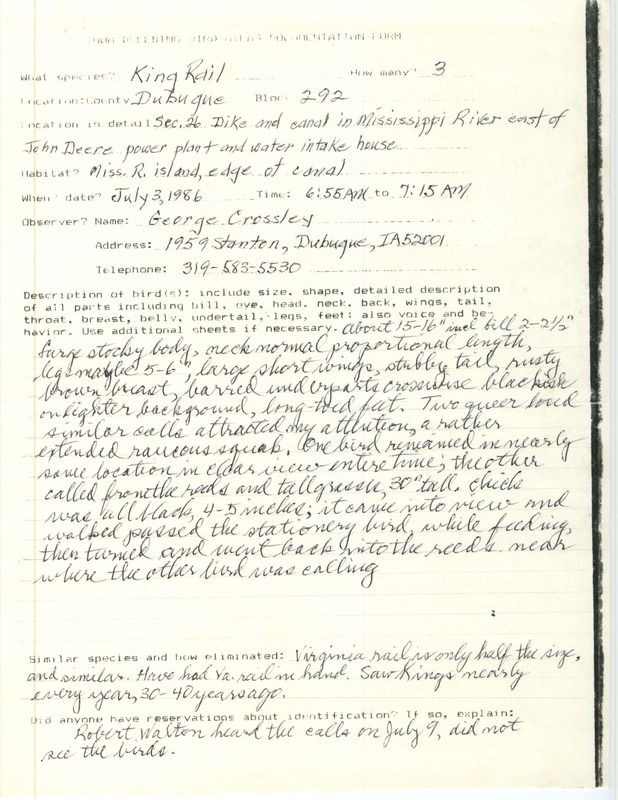 IOWA BREEDING BIRD ATLAS DOCUMENTATION FORM
What species? King Rail How many? 3
Location:County Dubuque Bloc: 292
Location in detail Sec. 26 Dike and canal in Mississippi River east of
John Deere power plant and water intake house
Habitat? Miss. R. island, edge of canal
When? date? July 3, 1986 Time: 6:55 AM to 7:15 AM
Observer? Name: George Crossley
Address: 1959 Stanton, Dubuque, IA 52001
Telephone: 319-583-5530
Description of bird(s): include size, shape, detailed description
of all parts including bill, eye, head, neck, back, wings, tail,
throat, breast, belly, undertail, legs, feet; also voice and be-
havior. Use additional sheets if necessary. About 15-16" incl bill 2-2½"
large stocky body, neck normal proportional length,
legs maybe 5-6", large short wings, stubby tail, rusty
brown breast, barred underparts crosswise blackish
on lighter background, long-toed feet. Two queer loud
similar calls attracted my attention, a rather
extended raucous squak. One bird remained in nearly
same location in clear view entire time; the other
called from the reeds and tall grasses, 30" tall. Chick
was all black, 4-5 inches; it came into view and
walked passed the stationery bird, while feeding,
then turned and went back into the reeds near
where the other bird was calling
Similar species and how eliminated: Virginia rail is only half the size,
and similar. Have had Va. rail in hand. Saw Kings nearly
every year, 30-40 years ago.
Did anyone have reservations about identification? If so, explain:
Robert Walton heard the calls on July 9, did not
see the birds.